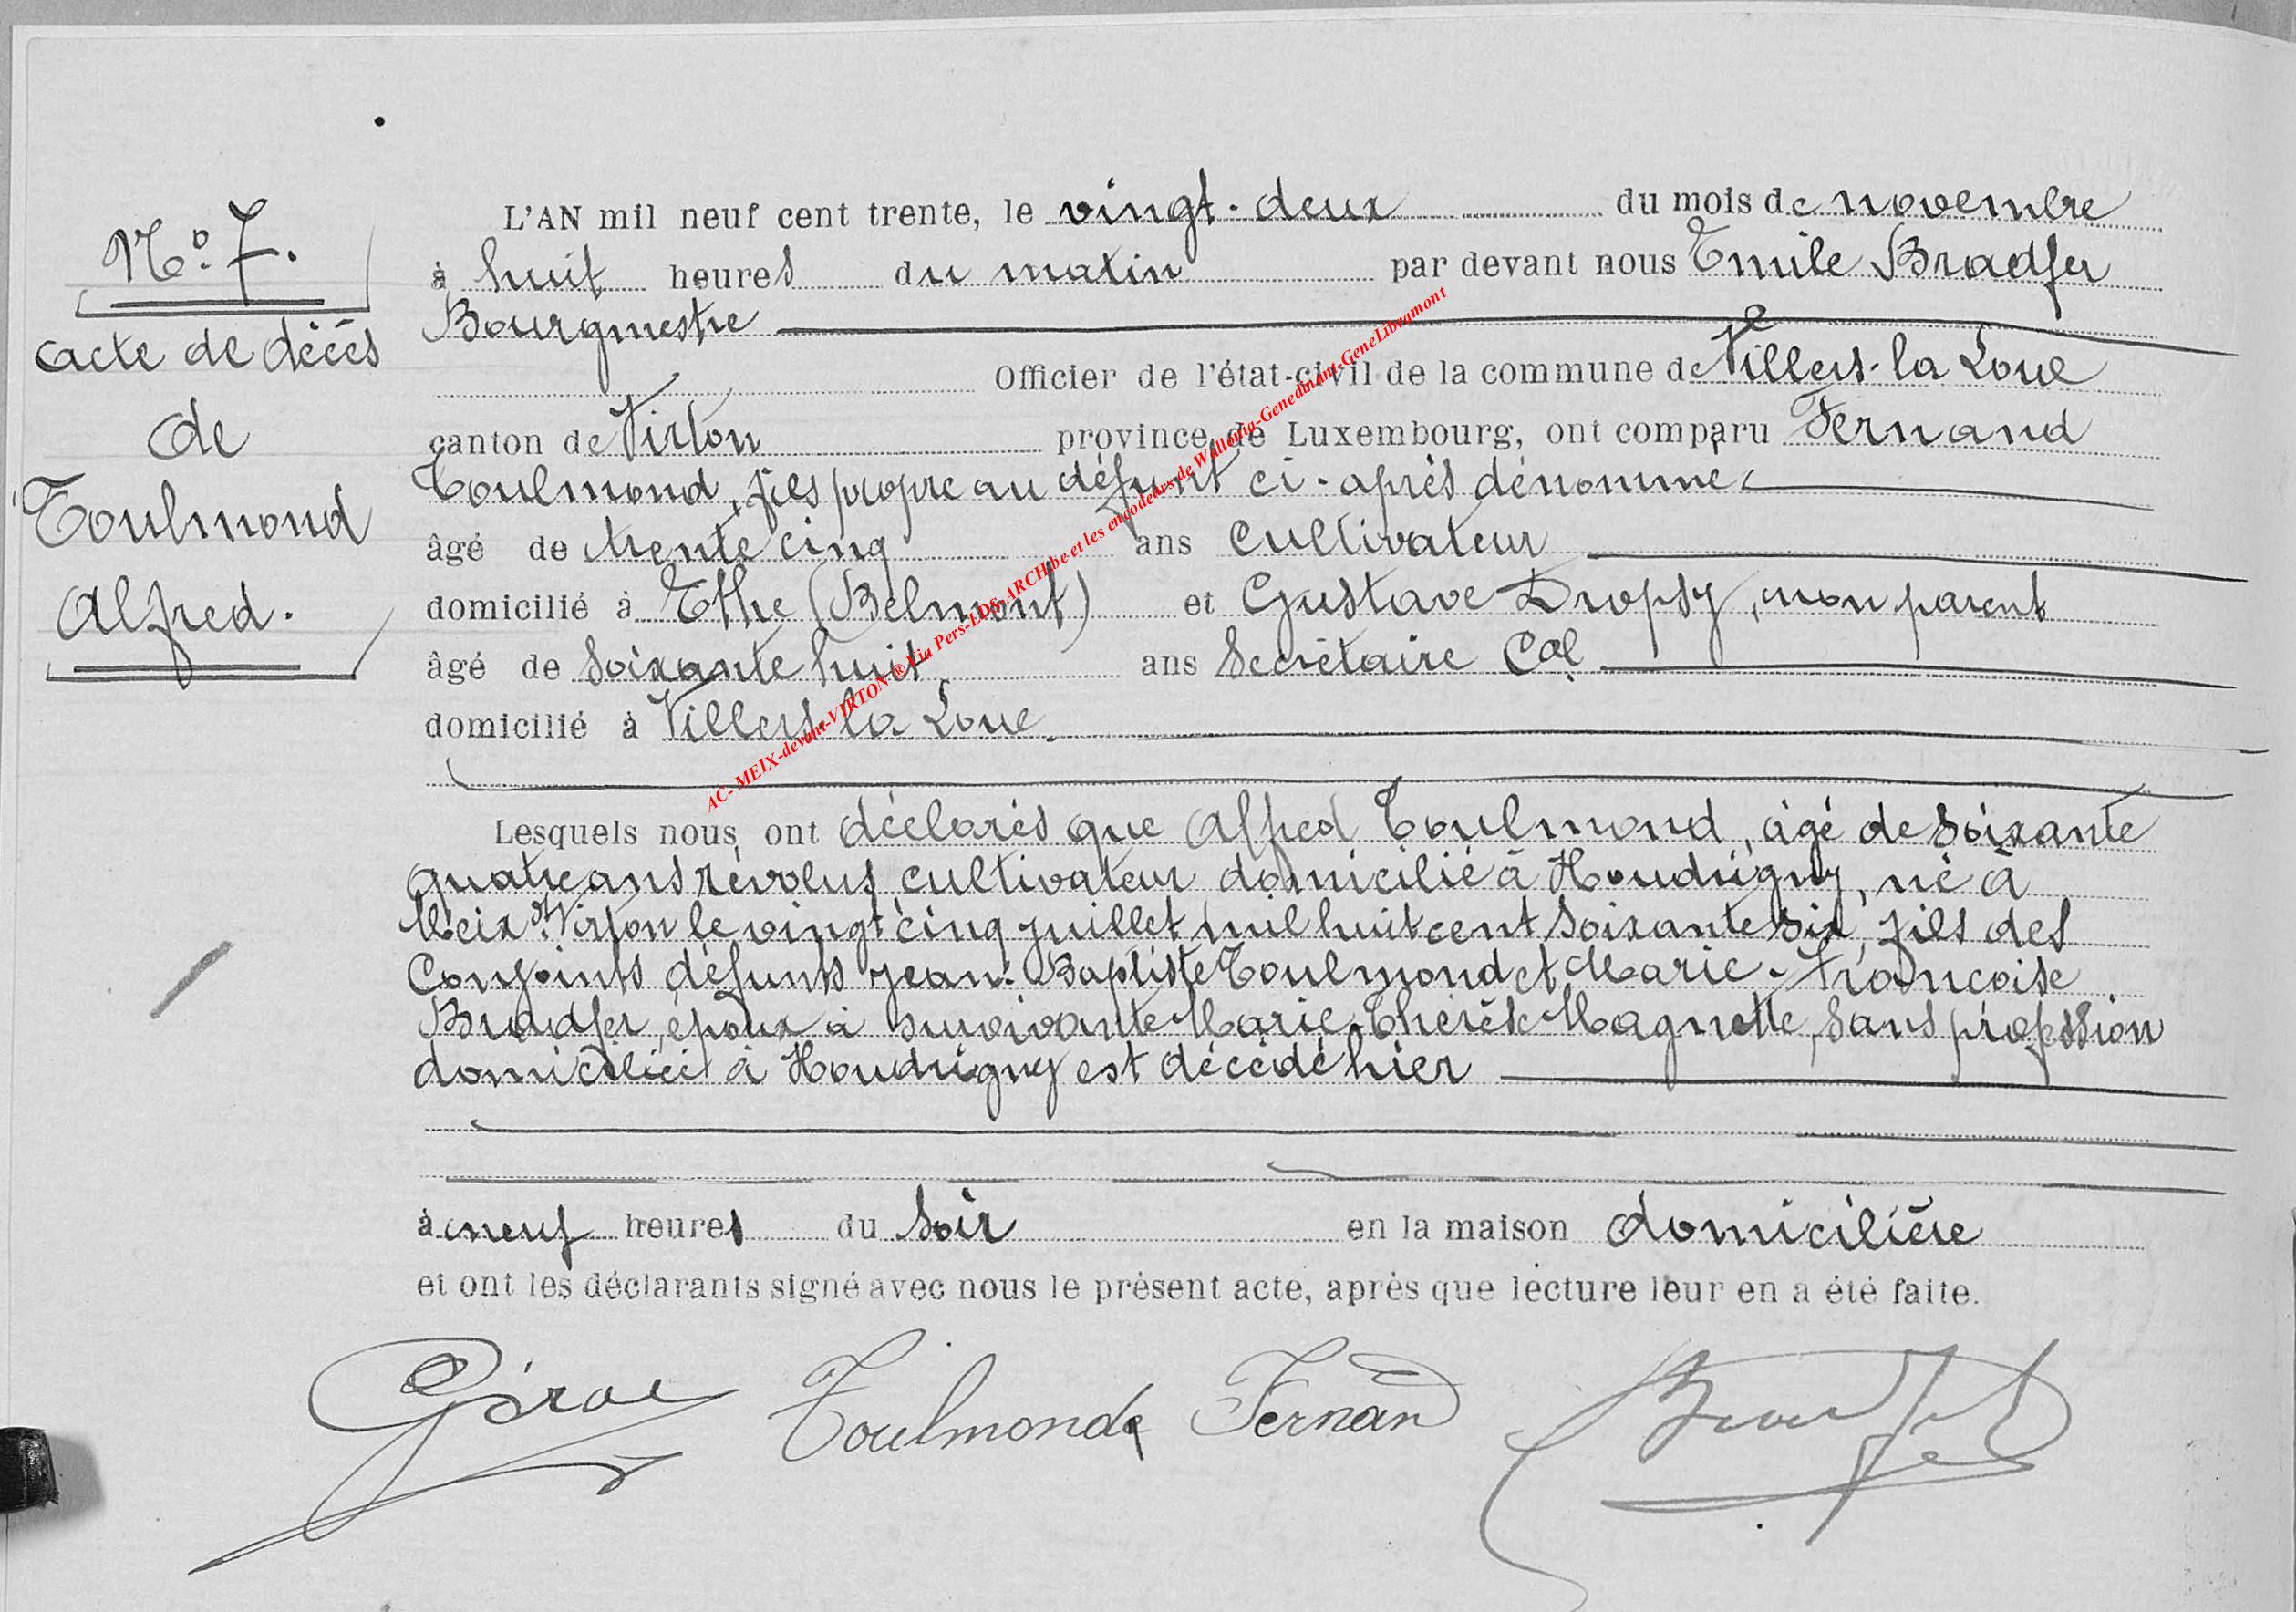 N° 7.
acte de décès
de
Toulmond
Alfred.
L'AN mil neuf cent trente, le vingt-deux du mois de novembre
à huit heures du matin par devant nous Emile Bradfer
Bourgmestre
Officier de l'état-civil de la commune de Villers-la Loue
canton de Virton province de Luxembourg, ont comparu Fernand
Toulmond, fils propre au défunt ci-après dénommé
âgé de trente cinq ans cultivateur
domicilié à Ethe (Belmont) et Gustave Dropsy, non parent
âgé de soixante huit ans Secrétaire Cal
domicilié à Villers-la Loue.
Lesquels nous ont déclarés que Alfred Toulmond, âgé de soixante
quatre ans révolus cultivateur domicilié à Houdrigny, né à
Meix dt Virton le vingt cinq juillet mil huit cent soixante six, fils des
Conjoints défunts Jean-Baptiste Toulmond et Marie-Françoise
Bradfer, époux à survivante Marie Thérèse Magnette, sans profession
domiciliée à Houdrigny est décédé hier
à neuf heures du soir en la maison domicilière
et ont les déclarants signé avec nous le présent acte, après que lecture leur en a été faite.
Toulmonde Fernand Bradfer
AC- MEIX-devant-VIRTON-® Via Pers-LDS-ARCH.be et les encodeurs de Wallonia-Genedinant-GeneLibramont